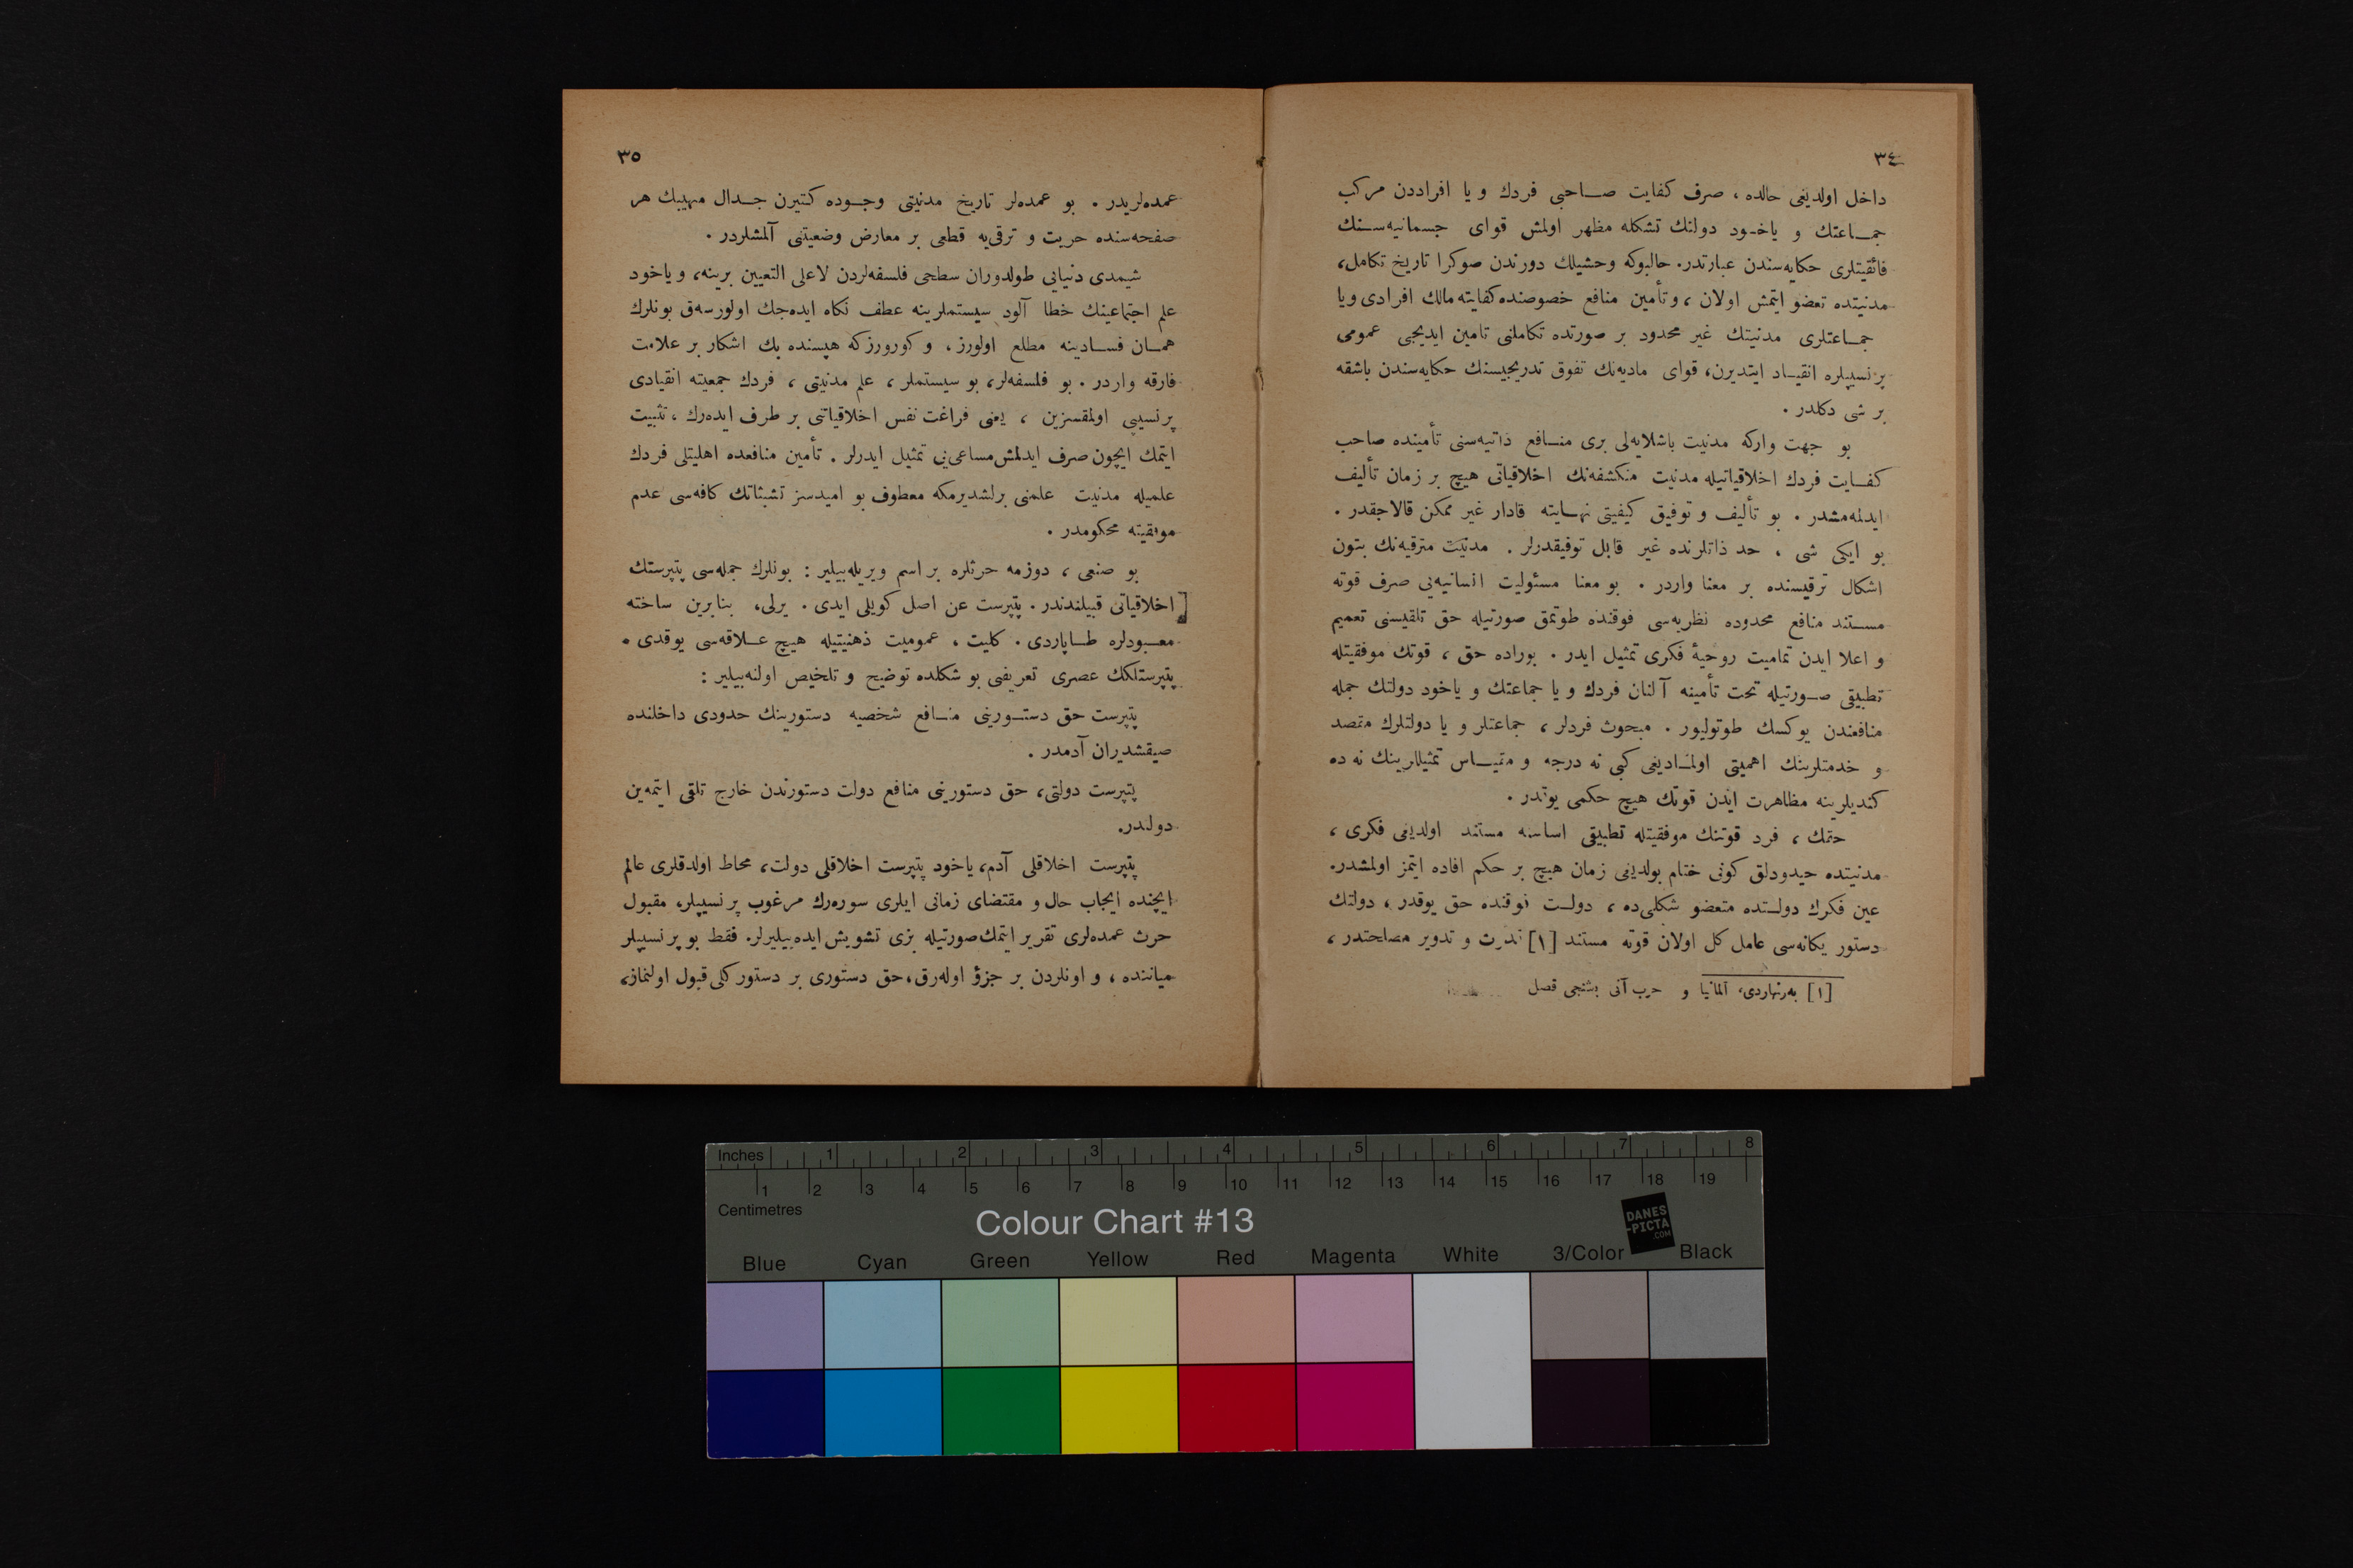 ٣٤
داخل اولدیغی حالده ، صرف كفایت صـاحبی فردك و یا افراددن مركب
جمـاعتك و یاخـود دولتك تشكله مظهر اولمش قوای جسمانیه‌سـنك
فائقیتلری حكایه‌سندن عبارتدر. حالبوكه وحشیلك دورندن صوكرا تاریخ تكامل،
مدنیتده تعضو ایتمش اولان ، و تأمین منافع خصوصنده كفایته مالك افرادی ویا
جمـاعتلری مدنیتك غیر محدود بر صورتده تكاملنی تامین ایدیجی عمومی
پرنسیپلره انقیـاد ایتدیرن، قوای مادیه‌نك تفوق تدریجیسنك حكایه‌سندن باشقه
بر شی دكلدر .
بو جهت واركه مدنیت باشلایه‌لی بری منـافع ذاتیه‌سنی تأمینده صاحب
كفـایت فردك اخلاقیاتیله مدنیت منكشفه‌نك اخلاقیاتی هیچ بر زمان تألیف
ایدلمه‌مشدر . بو تألیف و توفیق كیفیتی نهـایته قادار غیر ممكن قالاجقدر .
بو ایكی شی ، حد ذاتلرنده غیر قابل توفیقدرلر . مدنیت مترقیه‌نك بتون
اشكال ترقیسنده بر معنا واردر . بو معنا مسئولیت انسانیه‌یی صرف قوته
مسـتند منافع محدوده نظریه‌سی فوقنده طوتمق صورتیله حق تلقیسنی تعمیم
و اعلا ایدن تمامیت روحیهٔ فكری تمثیل ایدر . بوراده حق ، قوتك موفقیتله
تطبیقی صـورتیله تحت تأمینه آلنان فردك و یا جماعتك و یاخود دولتك جمله
منافعندن یوكسك طوتولیور . مبحوث فردلر ، جماعتلر و یا دولتلرك مقصد
و خدمتلرینك اهمیتی اولمـادیغی كبی نه درجه و مقیـاس تمثیللرینك نه ده
كندیلرینه مظاهرت ایدن قوتك هیچ حكمی یوقدر .
حقك ، فرد قوتنك موفقیتله تطبیقی اساسنه مستند اولدیغی فكری ،
مدنیتده حیدودلق كونی ختام بولدیغی زمان هیچ بر حكم افاده ایتمز اولمشدر.
عین فكرك دولـتده متعضو شكلی ده ، دولـت فوقنده حق یوقدر ، دولتك
دستور یكانه‌سی عامل كل اولان قوته مستند [١] قدرت و تدویر مصلحتدر ،
[١] به‌رنهاردی، آلمانیا و حرب آتی بشنجی فصل
٣٥
عمده‌لریدر . بو عمده‌لر تاریخ مدنیتی وجـوده كتیرن جـدال مهیبك هر
صفحه‌سنده حریت و ترقی‌یه قطعی بر معارض وضعیتنی آلمشلردر .
شیمدی دنیایی طولدوران سطحی فلسفه‌لردن لاعلی التعیین برینه، و یاخود
علم اجتماعینك خطا آلود سیستملرینه عطف نكاه ایده‌جك اولورسه‌ق بونلرك
همـان فسـادینه مطلع اولورز ، و كورورزكه هپسنده پك اشكار بر علامت
فارقه واردر . بو فلسفه‌لر، بو سیستملر ، علم مدنیتی ، فردك جمعیته انقیادی
پرنسیپی اولمقسزین ، یعنی فراغت نفس اخلاقیاتنی بر طرف ایده‌رك ، تثبیت
ایتمك ایچون صرف ایدلمش مساعی‌یی تمثیل ایدرلر . تأمین منافعده اهلیتلی فردك
علمیله مدنیت علمنی برلشدیرمكه معطوف بو امیدسز تشبثاتك كافه‌سی عدم
موفقیته محكومدر .
بو صنعی ، دوزمه حرثلره بر اسم ویریله‌بیلیر : بونلرك جمله‌سی پتپرستك
اخلاقیاتی قبیلندندر . پتپرست عن اصل كویلی ایدی . یرلی، بنابرین ساخته
معـبودلره طـاپاردی . كلیت ، عمومیت ذهنیتیله هیچ عـلاقه‌سی یوقدی .
پتپرستلكك عصری تعریفی بو شكلده توضیح و تلخیص اولنه‌بیلیر :
پتپرست حق دستـورینی منـافع شخصیه دستورینك حدودی داخلنده
صیقشدیران آدمدر .
پتپرست دولتی، حق دستورینی منافع دولت دستورندن خارج تلقی ایتمه‌ین
دولتدر.
پتپرست اخلاقلی آدم، یاخود پتپرست اخلاقلی دولت، محاط اولدقلری عالم
ایچنده ایجاب حال و مقتضای زمانی ایلری سوره‌رك مرغوب پرنسیپلر، مقبول
حرث عمده‌لری تقریر ایتمك صورتیله بزی تشویش ایده‌بیلیرلر. فقط بو پرنسیپلر
میاننده ، و اونلردن بر جزؤ اوله‌رق، حق دستوری بر دستور كلی قبول اولنماز،
Inches 1 2 3 4 5 6 7 8
1 2 3 4 5 6 7 8 9 10 11 12 13 14 15 16 17 18 19
Centimetres
Colour Chart #13
DANES
-PICTA
.COM
Blue Cyan Green Yellow Red Magenta White 3/Color Black